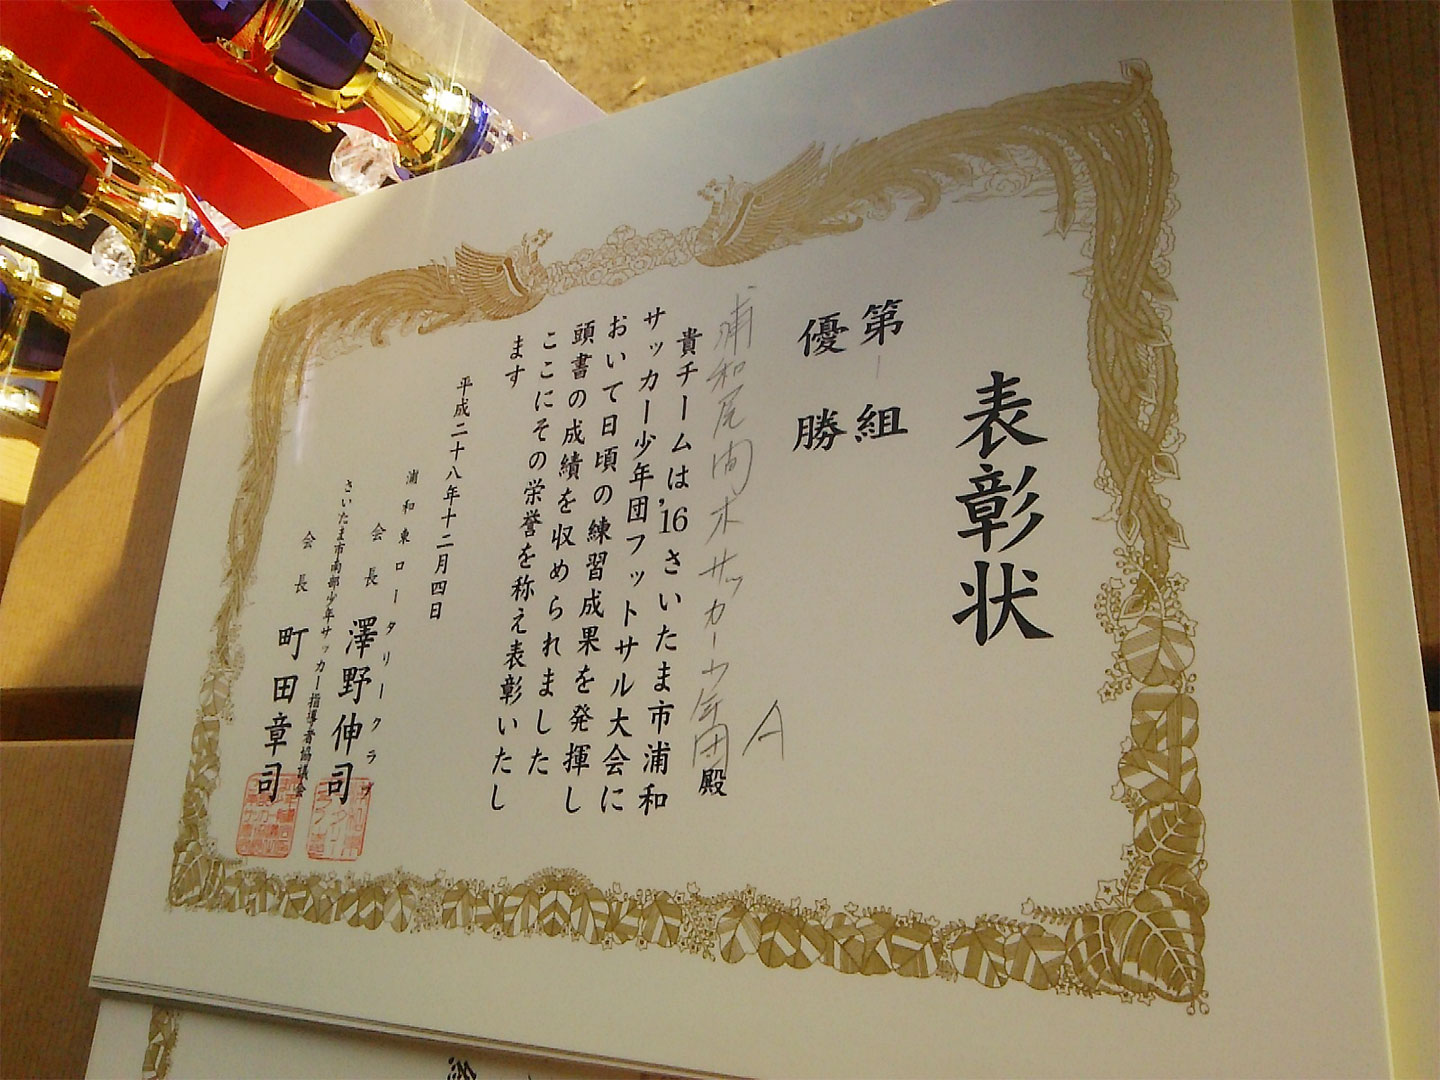 表彰状
第一組
優勝
浦和尾間木サッカー少年団A殿
貴チームは、'16さいたま市浦和
サッカー少年団フットサル大会に
おいて日頃の練習成果を発揮し
頭書の成績を収められました
ここにその栄誉を称え表彰いたし
ます
平成二十八年十二月四日
浦和東ロータリークラブ
会長 澤野伸司
さいたま市南部少年サッカー指導者協議会
会長 町田章司